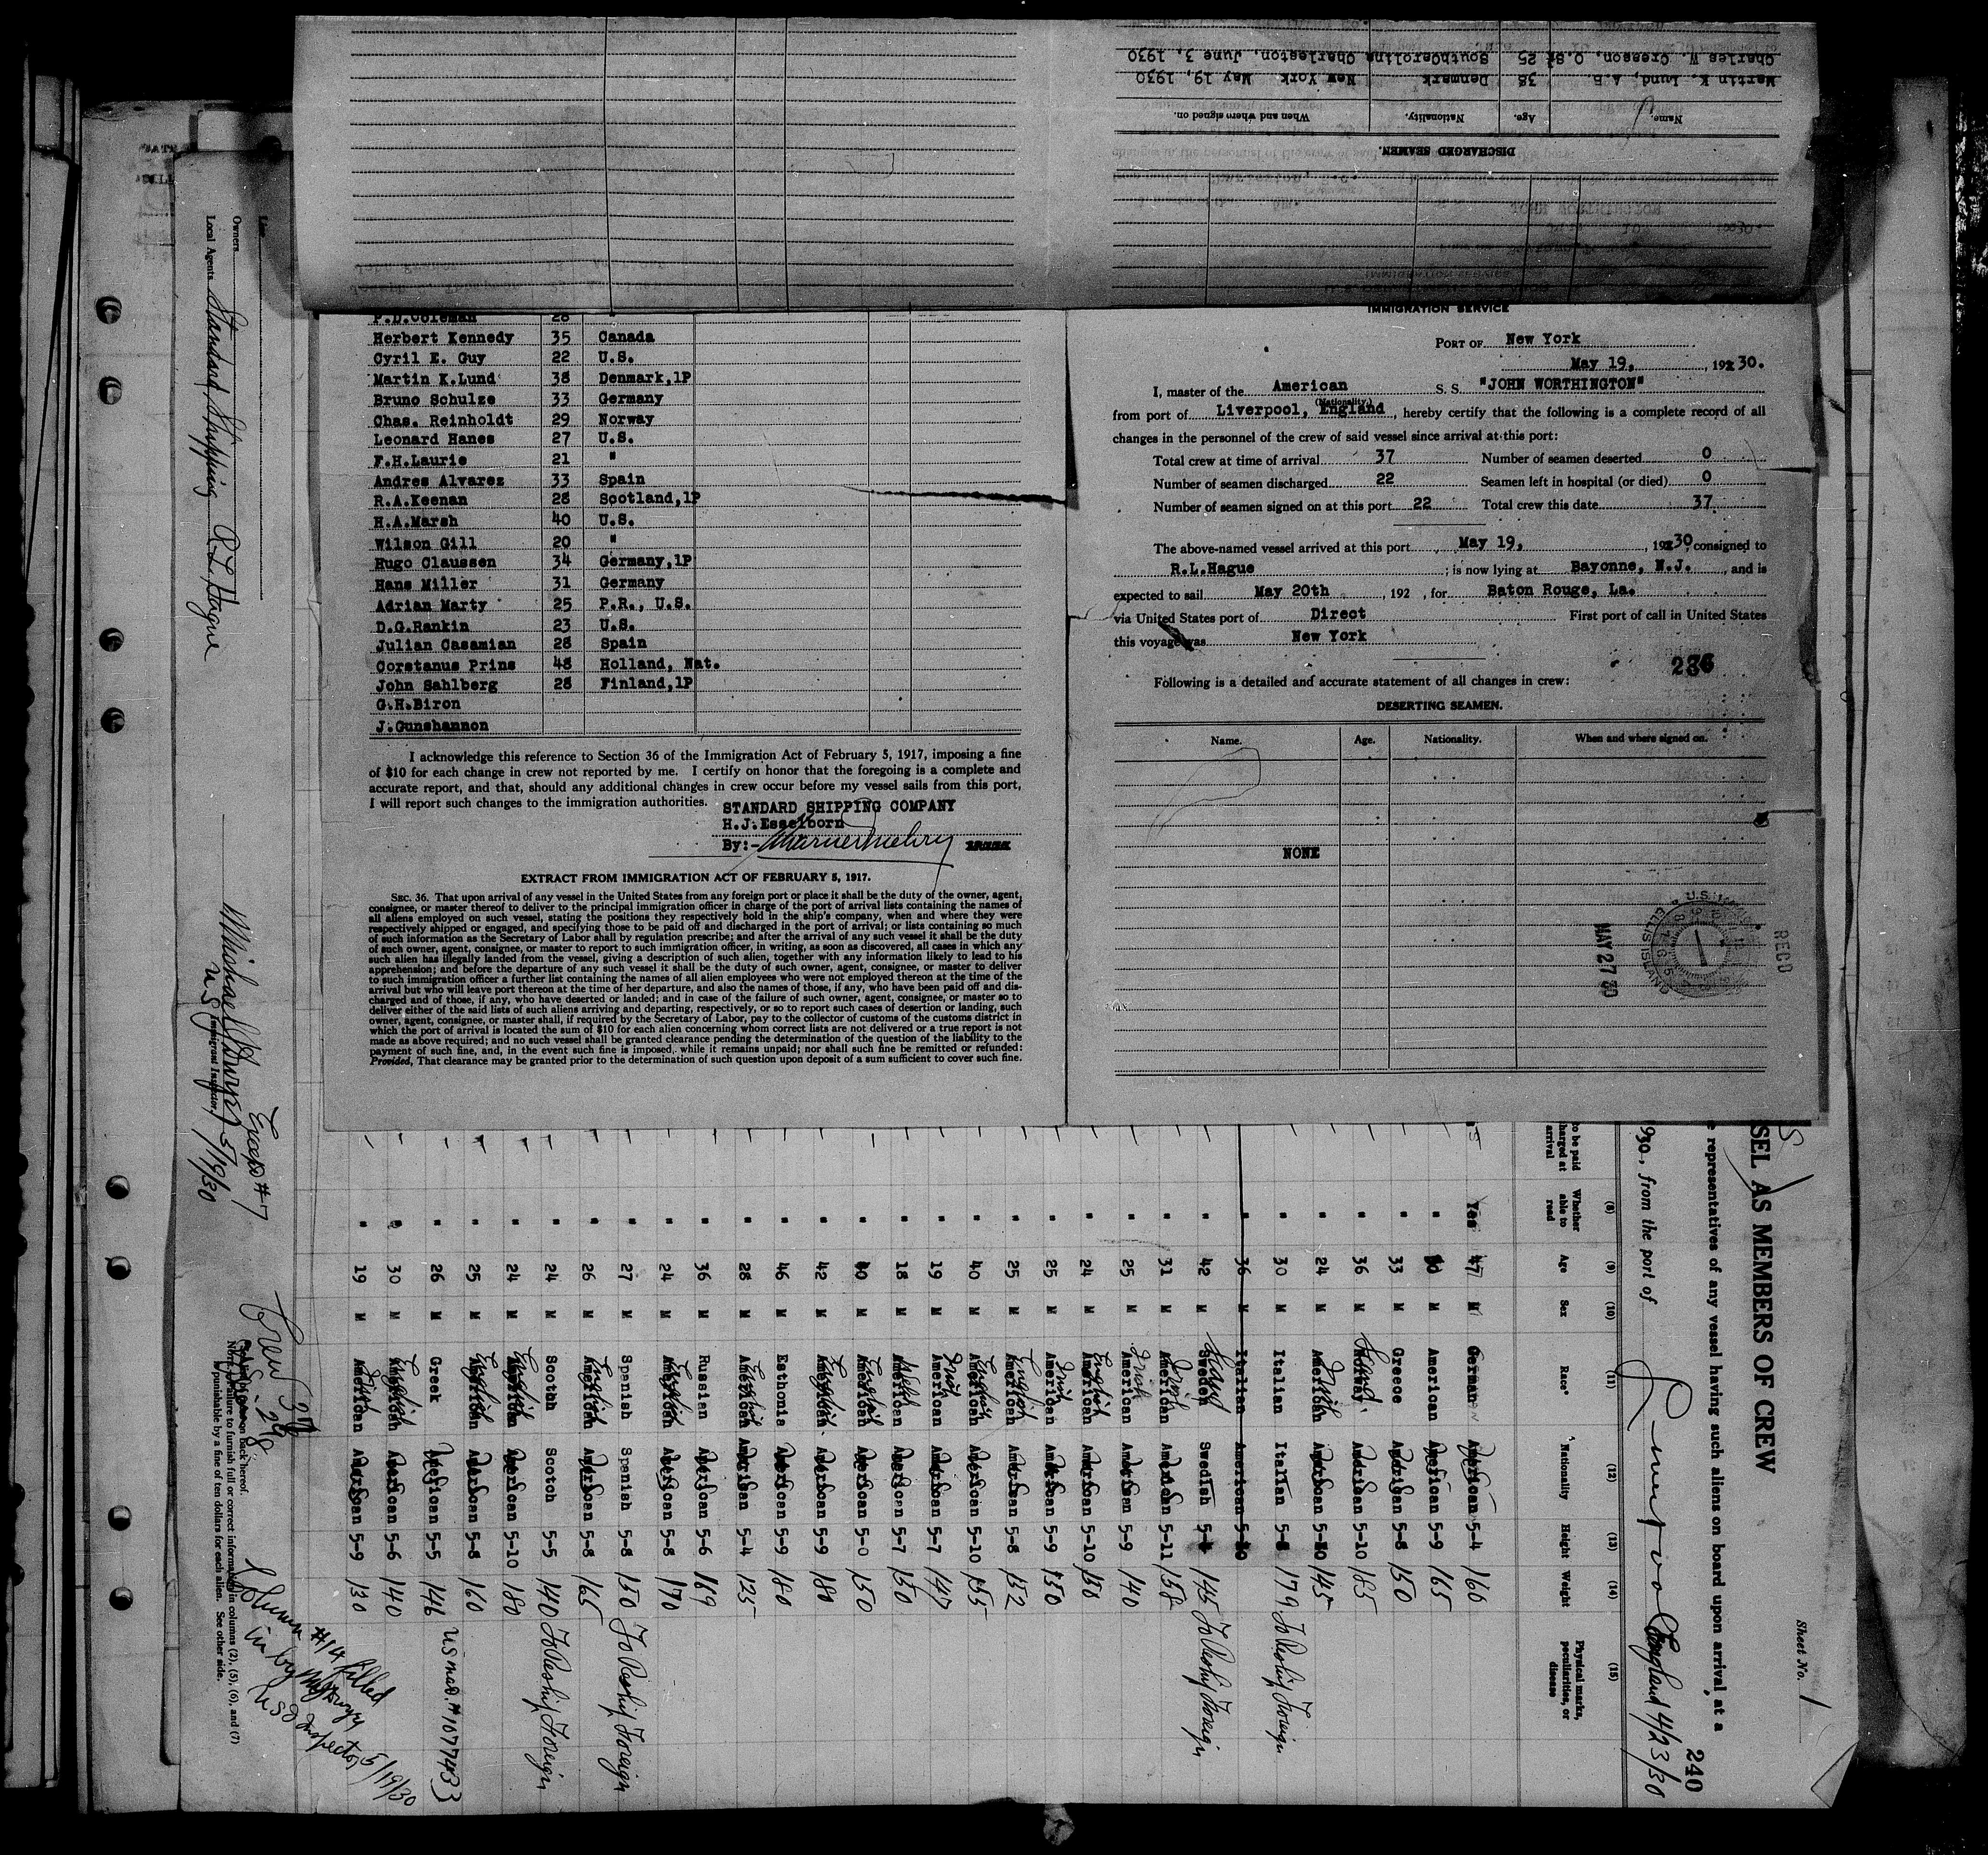 Martin K. Lund, A.B. 38 Denmark New York May 19, 1930
Charles W. Cresson, O.S. 25 SouthCarolina Charleston, June 3, 1930
DISCHARGED SEAMEN.
Name. Age. Nationality. When and where signed on.
P.D.Coleman 28 "
Herbert Kennedy 35 Canada
Cyril E. Guy 22 U.S.
Martin K.Lund 38 Denmark,1P
Bruno Schulze 33 Germany
Chas. Reinholdt 29 Norway
Leonard Hanes 27 U.S.
F.H.Laurie 21 "
Andres Alvarez 33 Spain
R.A.Keenan 28 Scotland,1P
H.A.Marsh 40 U.S.
Wilson Gill 20 "
Hugo Claussen 34 Germany,1P
Hans Miller 31 Germany
Adrian Marty 25 P.R., U.S.
D.G.Rankin 23 U.S.
Julian Casamian 28 Spain
Corstanus Prins 48 Holland, Nat.
John Sahlberg 28 Finland,1P
G.H.Biron
J.Gunshannon
I acknowledge this reference to Section 36 of the Immigration Act of February 5, 1917, imposing a fine
of $10 for each change in crew not reported by me. I certify on honor that the foregoing is a complete and
accurate report, and that, should any additional changes in crew occur before my vessel sails from this port,
I will report such changes to the immigration authorities.
STANDARD SHIPPING COMPANY
H.J.Esselborn
By:-
EXTRACT FROM IMMIGRATION ACT OF FEBRUARY 5, 1917.
SEC. 36. That upon arrival of any vessel in the United States from any foreign port or place it shall be the duty of the owner, agent,
consignee, or master thereof to deliver to the principal immigration officer in charge of the port of arrival lists containing the names of
all aliens employed on such vessel, stating the positions they respectively hold in the ship's company, when and where they were
respectively shipped or engaged, and specifying those to be paid off and discharged in the port of arrival; or lists containing so much
of such information as the Secretary of Labor shall by regulation prescribe; and after the arrival of any such vessel it shall be the duty
of such owner, agent, consignee, or master to report to such immigration officer, in writing, as soon as discovered, all cases in which any
such alien has illegally landed from the vessel, giving a description of such alien, together with any information likely to lead to his
apprehension; and before the departure of any such vessel it shall be the duty of such owner, agent, consignee, or master to deliver
to such immigration officer a further list containing the names of all alien employees who were not employed thereon at the time of the
arrival but who will leave port thereon at the time of her departure, and also the names of those, if any, who have been paid off and dis-
charged and of those, if any, who have deserted or landed; and in case of the failure of such owner, agent, consignee, or master so to
deliver either of the said lists of such aliens arriving and departing, respectively, or so to report such cases of desertion or landing, such
owner, agent, consignee, or master shall, if required by the Secretary of Labor, pay to the collector of customs of the customs district in
which the port of arrival is located the sum of $10 for each alien concerning whom correct lists are not delivered or a true report is not
made as above required; and no such vessel shall be granted clearance pending the determination of the question of the liability to the
payment of such fine, and, in the event such fine is imposed, while it remains unpaid; nor shall such fine be remitted or refunded:
Provided, That clearance may be granted prior to the determination of such question upon deposit of a sum sufficient to cover such fine.
IMMIGRATION SERVICE
PORT OF New York
May 19, 19230.
I, master of the American S. S. "JOHN WORTHINGTON"
(Nationality.)
from port of Liverpool, England, hereby certify that the following is a complete record of all
changes in the personnel of the crew of said vessel since arrival at this port:
Total crew at time of arrival 37 Number of seamen deserted 0
Number of seamen discharged 22 Seamen left in hospital (or died) 0
Number of seamen signed on at this port 22 Total crew this date 37
The above-named vessel arrived at this port May 19, 19230, consigned to
R.L.Hague ; is now lying at Bayonne, N.J. , and is
expected to sail May 20th , 192 , for Baton Rouge, La.
via United States port of Direct First port of call in United States
this voyage was New York
286
Following is a detailed and accurate statement of all changes in crew:
DESERTING SEAMEN.
Name. Age. Nationality. When and where signed on.
NONE
ELLIS ISLAND
MAY 27 30
RECD
Sheet No. 1
240
SEL AS MEMBERS OF CREW
e representatives of any vessel having such aliens on board upon arrival at a
930, from the port of Liverpool England 4/23/30
to be paid
harged at
arrival
(8) Whether able to read
(9) Age
(10) Sex
(11) Race*
(12) Nationality
(13) Height
(14) Weight
(15) Physical marks, peculiarities, or disease
Yes 47 M German American 5-4 166
" M American American 5-9 165
" 33 M Greece American 5-8 150
" 36 M Scand American 5-10 185
" 24 M Irish American 5-10 145
" 30 M Italian Italian 5-8 179 To Reship Foreign
" 36 M Italian American
" 42 M Scand Swedish 5-4 145 To Reship Foreign
" 31 M Irish American 5-11 158
" 25 M Irish American American 5-9 140
" 24 M English American American 5-10 158
" 25 M Irish American American 5-9 150
" 25 M English American American 5-8 152
" 40 M English American American 5-10 155
" 19 M Irish American American 5-7 147
" 18 M American American 5-7 150
" 40 M English American American 5-0 150
" 42 M English American American 5-9 180
" 46 M Esthonia American 5-9 180
" 28 M English American American 5-4 125
" 36 M Russian American 5-6 169
" 24 M English American American 5-8 170
" 27 M Spanish Spanish 5-8 150 To Reship Foreign
" 26 M English American American 5-8 165
" 24 M Scotch Scotch 5-5 140 To Reship Foreign
" 24 M English American American 5-10 180
" 25 M English American American 5-8 160
" 26 M Greek American 5-5 146 US nat. #1077433
" 30 M English American American 5-6 140
" 19 M Irish American American 5-9 130
Line
Owners
Local Agents Standard Shipping R.L. Hague
Except #7
5/19/30
U S Immigrant Inspector.
Crew 37
on back hereof.
failure to furnish full or correct information in columns (2), (5), (6), and (7)
is punishable by a fine of ten dollars for each alien. See other side.
Column #14 filled
in by
USD Inspector 5/19/30